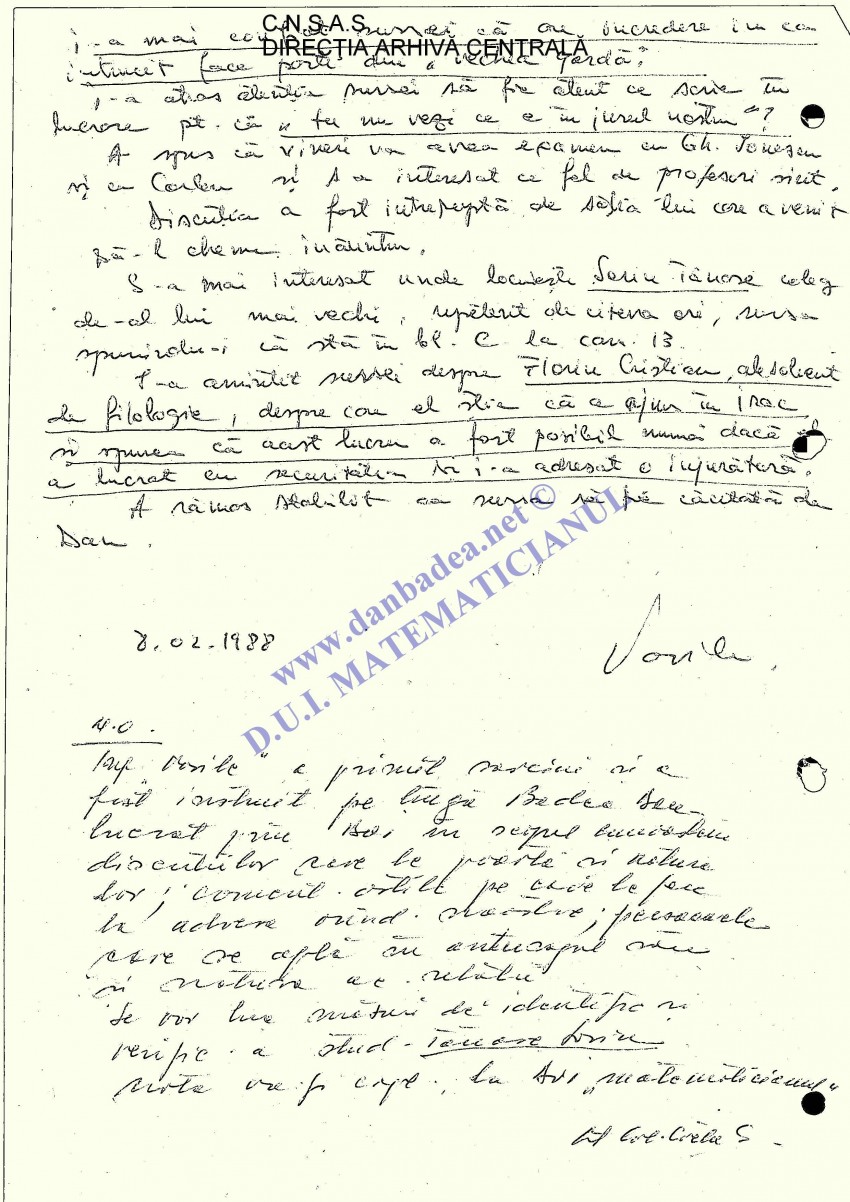 C.N.S.A.S.
DIRECTIA ARHIVA CENTRALĂ
i-a mai sursei că are încredere în ea
întrucît face parte din „vechea gardă".
I-a atras atenția sursei să fie atent ce scrie în
lucrare pt. că „tu nu vezi ce e în jurul nostru"?
A spus că vineri va avea examen cu Gh. Ionescu
și cu și s-a interesat ce fel de profesori sînt.
Discuția a fost întreruptă de soția lui care a venit
să-l cheme înăuntru.
S-a mai interesat unde locuiește Sorin Tănase coleg
de-al lui mai vechi, repetent de cîteva ori, sursa
spunîndu-i că stă în bl. C la cam. 13.
I-a amintit sursei despre Florin Cristian, absolvent
de filologie, despre care el știa că a ajuns în Irac
și spunea că acest lucru a fost posibil numai dacă
a lucrat cu securitatea și i-a adresat o înjurătură.
A rămas stabilit ca sursa să fie căutată de
Dan.
8.02.1988
Vasile
www.danbadea.net ©
D.U.I. MATEMATICIANUL
N.O.
Inf. „Vasile" a primit sarcini și a
fost instruit pe lîngă Badea Dan
lucrat prin în scopul cunoașterii
discuțiilor care le poartă și natura
lor; coment. ostile pe care le face
la adresa orînd. noastre; persoanele
care se află în anturajul său
și natura ac. relații
Se vor lua măsuri de identific. și
verific. a stud. Tănase Sorin
Nota va fi expl. la „Matematicianul"